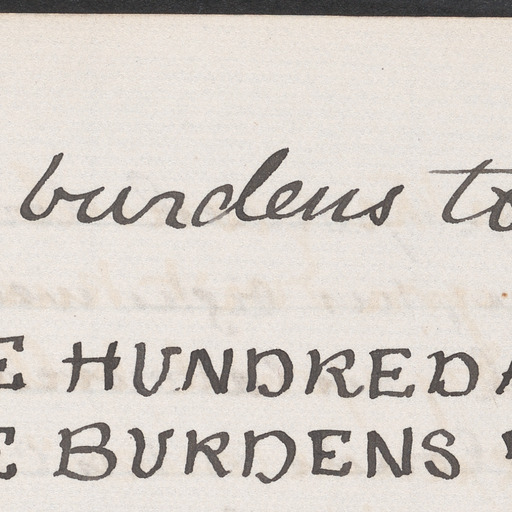 burdens to
E HUNDRED
E BURDENS